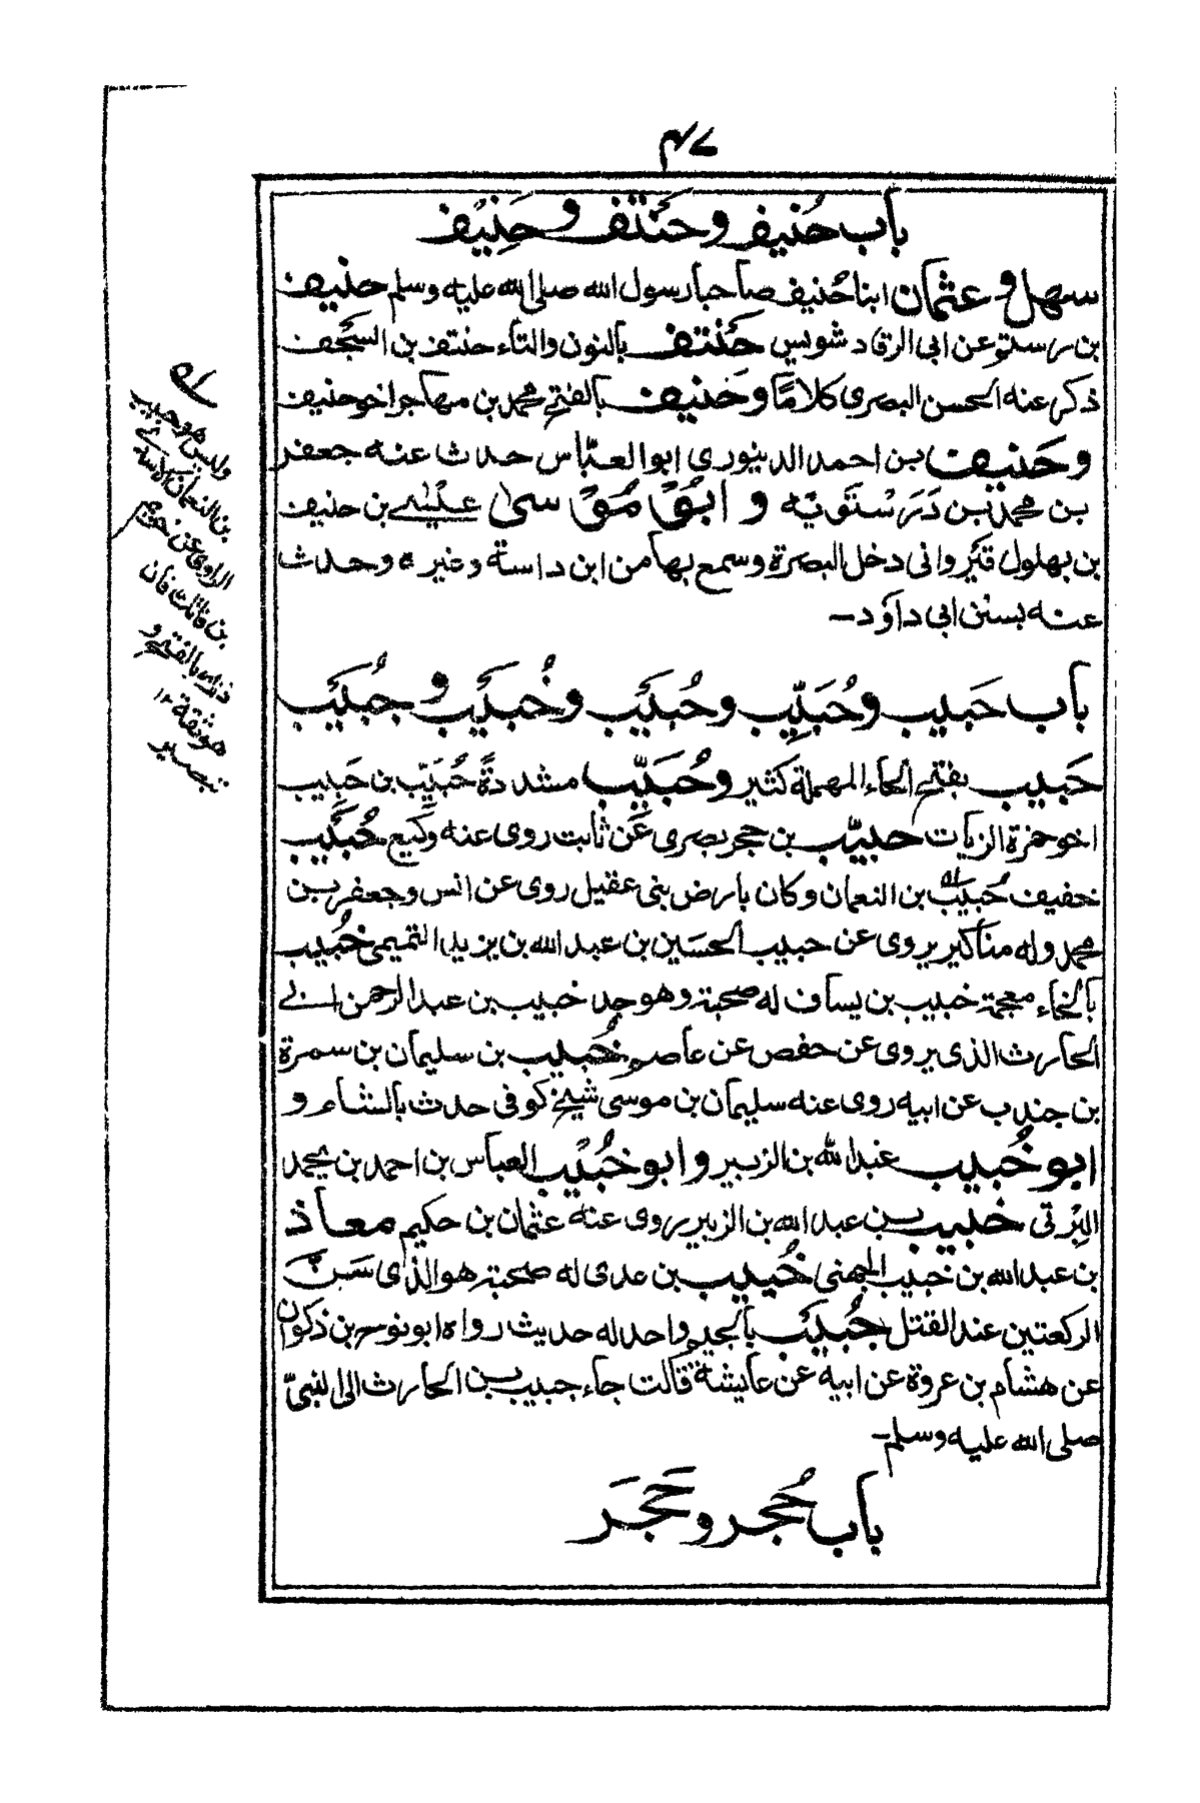 ٤٧
باب حُنيف وحَنتَف وحَنِيف
سهل وعثمان ابنا حُنيف صاحبا رسول الله صلى الله عليه وسلم حنيف
بن رستو عن ابى الرقاد شويس حَنتف بالنون والتاء حنتف بن السجف
ذكر عنه الحسن البصرى كلامًا وحَنيف بالفتح محمد بن مهاجر اخو حنيف
وحَنيف بن احمد الدينورى ابو العباس حدث عنه جعفر
بن محمد بن دَرَسْتَوَيْه و ابو موسى عيسى بن حنيف
بن بهلول قيروانى دخل البصرة وسمع بها من ابن داسة وغيره وحدث
عنه بسنن ابى داود -
باب حَبيب وحُبَيِّب وحُبَيب وخُبَيب وجُبَيب
حَبيب بفتح الحاء المهملة كثير وحُبَيِّب مشددةً حُبَيِّب بن حَبيب
اخو حمزة الزيات حبيّب بن حجر بصرى عن ثابت روى عنه وكيع حُبَيب
خفيف حُبيب بن النعمان وكان بارض بنى عقيل روى عن انس وجعفر بن
محمد وله مناكير يروى عن حبيب الحسين بن عبد الله بن يزيد التميمى خُبيب
بالخاء معجمة خبيب بن يساف له صحبة وهو جد خبيب بن عبد الرحمن ابى
الحارث الذى يروى عن حفص عن عاصم خُبيب بن سليمان بن سمرة
بن جندب عن ابيه روى عنه سليمان بن موسى شيخ كوفى حدث بالشام و
ابو خُبيب عبد الله بن الزبير وابو خُبَيب العباس بن احمد بن محمد
البِرْتى خبيب بن عبد الله بن الزبير روى عنه عثمان بن حكيم معاذ
بن عبد الله بن خبيب الجهنى خُبيب بن عدى له صحبة هو الذى سَنَّ
الركعتين عند القتل جُبَيب بالجيم واحد له حديث رواه ابو نوح بن ذكوان
عن هشام بن عروة عن ابيه عن عايشة قالت جاء جبيب بن الحارث الى النبىّ
صلى الله عليه وسلم -
باب حُجر وحَجَر
وليس هو حبيب
بن النعمان الاسدى
الراوى عن خريم
بن فاتك فان
ذلك بالفتح و
هو ثقة ١٢
تبصير